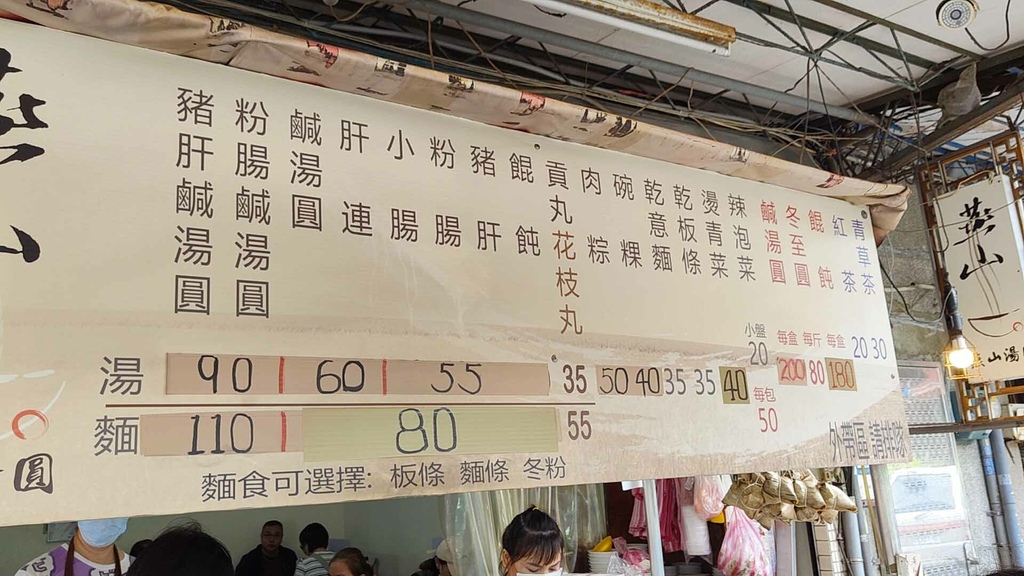 燕山
圓
豬肝鹹湯圓
粉腸鹹湯圓
鹹湯圓
肝連
小腸
粉腸
豬肝
餛飩
貢丸花枝丸
肉粽
碗粿
乾意麵
乾板條
燙青菜
辣泡菜
鹹湯圓
冬至圓
餛飩
紅茶
青草茶
湯 90 60 55 35 50 40 35 35 40
小盤 20
每盒 200
每斤 80
每盒 180
20 30
麵 110 80 55
每包 50
麵食可選擇: 板條 麵條 冬粉
外帶區 請排隊
燕山
山湯圓